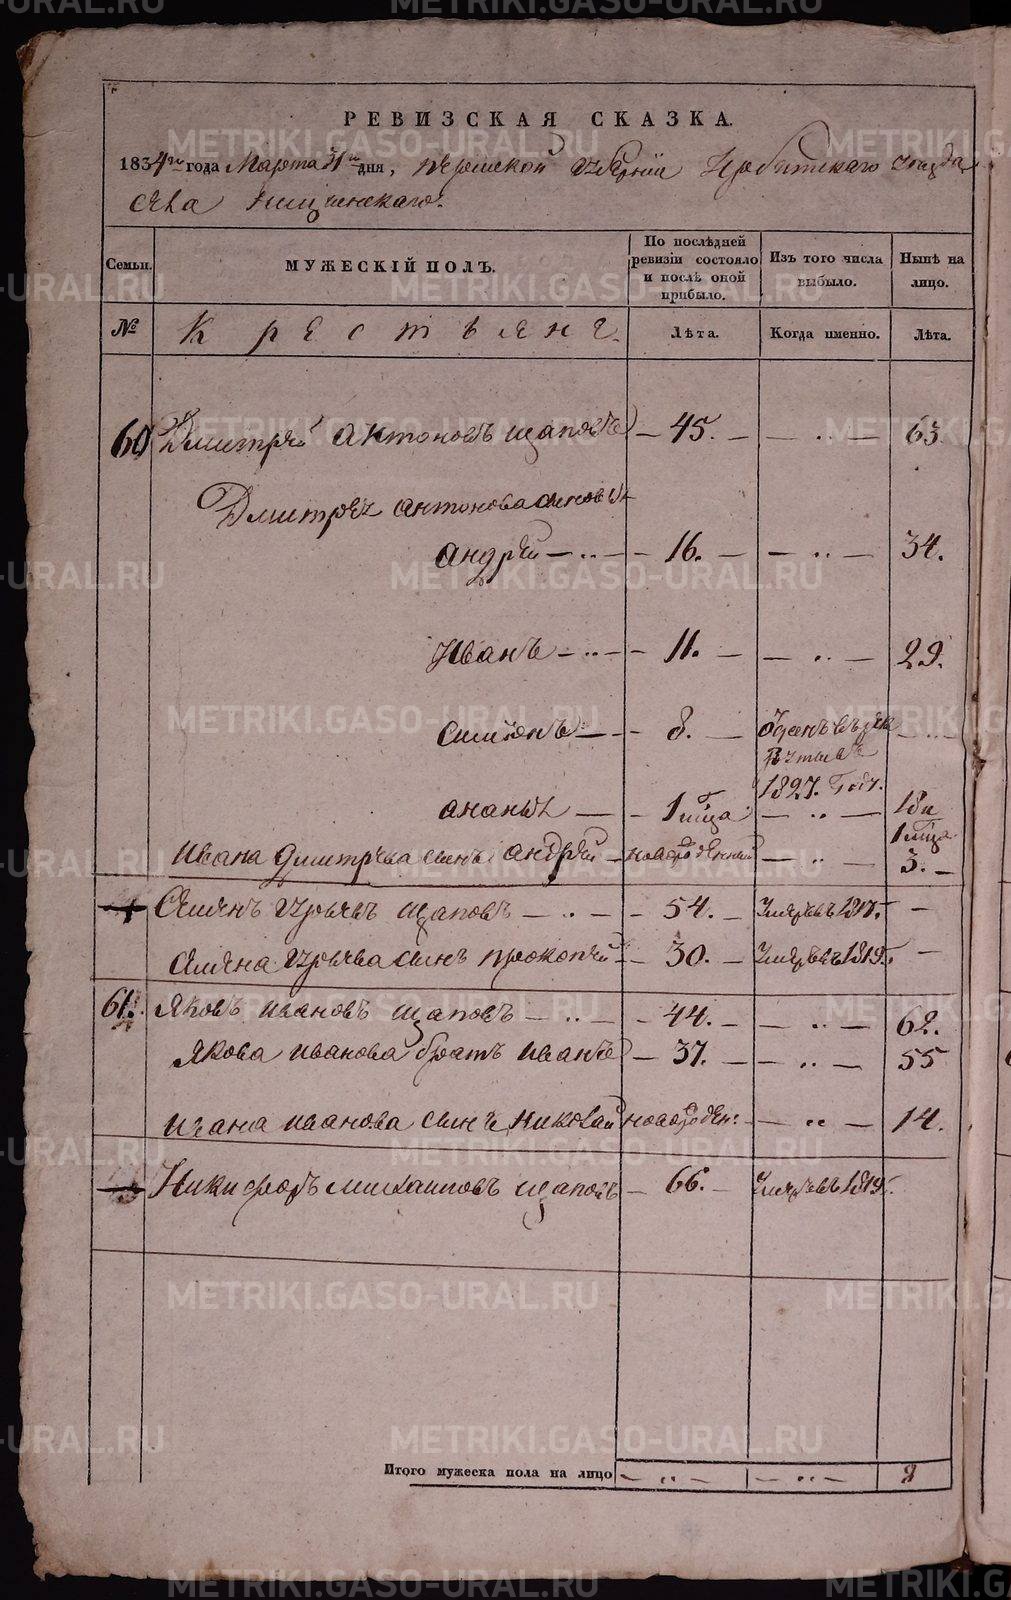 РЕВИЗСКАЯ СКАЗКА.
1834го года Марта 31го дня, Пермской Губернии Ирбитскаго уезда
села Ницинскаго.
Семьи.
МУЖЕСКІЙ ПОЛЪ.
По послѣдней ревизіи состояло и послѣ оной прибыло.
Изъ того числа выбыло.
Нынѣ на лицо.
№
Крестьяне.
Лѣта.
Когда именно.
Лѣта.
60 Дмитрей Антоновъ Щаповъ — 45. — — „ — 63.
Дмитрея Антонова сыновья
Андрей — „ — — 16. — — „ — 34.
Иванъ — „ — — 11. — — „ — 29.
Симионъ — — 8. — отданъ въ рекруты въ 1827. году. — „ —
Ананья — — 1 мѣсяца — „ — 18 и 1 мѣсяца
Ивана Дмитрева сынъ Андрей — новорожденный — „ — 3. —
Семенъ Юрьевъ Щаповъ — „ — — 54. — умеръ въ 18 —
Семена Юрьева сынъ Прокопей — 30. — умеръ въ 1819. —
61. Яковъ Ивановъ Щаповъ — „ — — 44. — — „ — 62.
Якова Иванова братъ Иванъ — 37. — — „ — 55
Ивана Иванова сынъ Николай новорожден: — „ — 14.
Никифоръ Михаиловъ Щаповъ — 66. — умеръ въ 1819.
Итого мужеска пола на лицо — „ — — „ — 8
METRIKI.GASO-URAL.RU